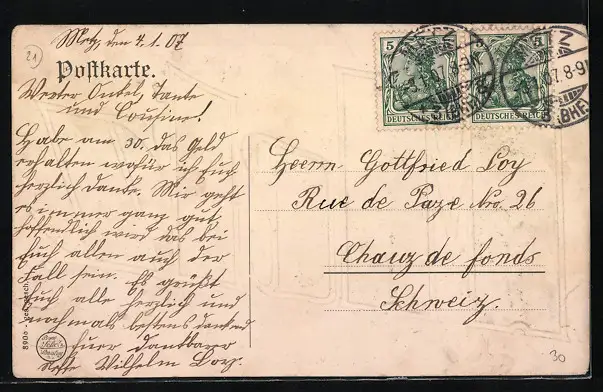 21
Metz, den 4.1.07
Postkarte.
Werter Onkel, Tante
und Cousine!
Habe am 30. das Geld
erhalten wofür ich Euch
herzlich danke. Mir geht
es immer ganz gut
hoffentlich wird das bei
Euch allen auch der
Fall sein. Es grüßt
Euch alle herzlich und
nochmals bestens dankend
Euer dankbarer
Neffe Wilhelm Loy.
5 5
DEUTSCHES REICH DEUTSCHES REICH
METZ METZ
07 8-9V
BHF
Herrn Gottfried Loy
Rue de Paze No. 26
Chaux de fonds
Schweiz.
8900
30